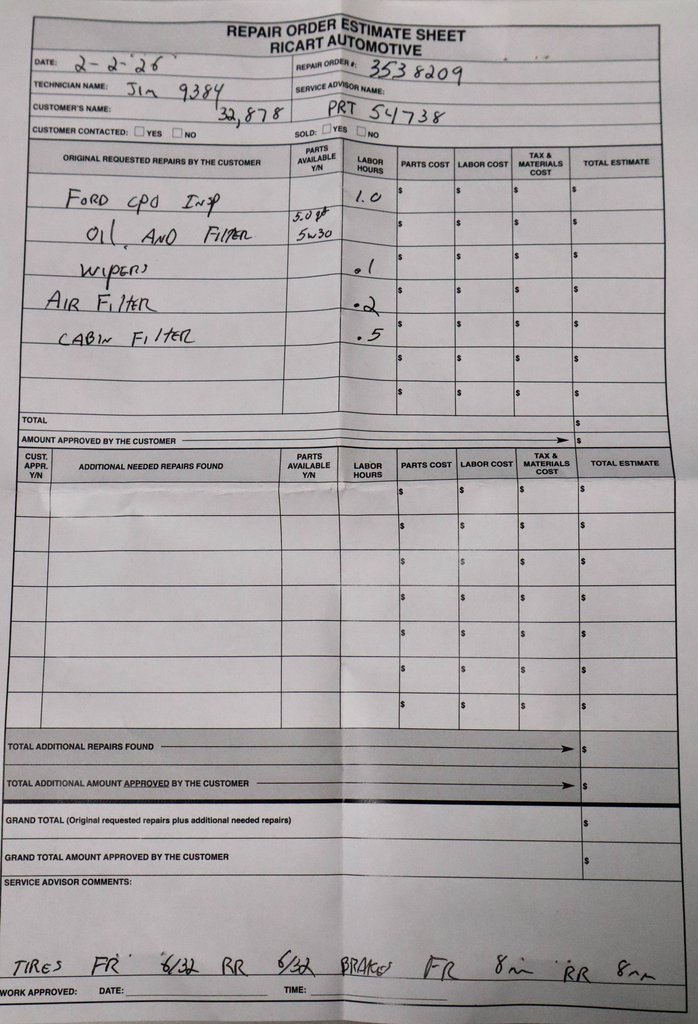 REPAIR ORDER ESTIMATE SHEET
RICART AUTOMOTIVE
DATE: 2-2-26 REPAIR ORDER #: 3538209
TECHNICIAN NAME: Jim 9384 SERVICE ADVISOR NAME:
CUSTOMER'S NAME: 32,878 PRT 54738
CUSTOMER CONTACTED: ☐ YES ☐ NO SOLD: ☐ YES ☐ NO
ORIGINAL REQUESTED REPAIRS BY THE CUSTOMER PARTS AVAILABLE Y/N LABOR HOURS PARTS COST LABOR COST TAX & MATERIALS COST TOTAL ESTIMATE
FORD CPO INSP 1.0 $ $ $ $
OIL AND FILTER 5.0 qt 5W30 $ $ $ $
WIPERS .1 $ $ $ $
AIR FILTER .2 $ $ $ $
CABIN FILTER .5 $ $ $ $
$ $ $ $
$ $ $ $
TOTAL $
AMOUNT APPROVED BY THE CUSTOMER $
CUST. APPR. Y/N ADDITIONAL NEEDED REPAIRS FOUND PARTS AVAILABLE Y/N LABOR HOURS PARTS COST LABOR COST TAX & MATERIALS COST TOTAL ESTIMATE
$ $ $ $
$ $ $ $
$ $ $ $
$ $ $ $
$ $ $ $
$ $ $ $
$ $ $ $
TOTAL ADDITIONAL REPAIRS FOUND $
TOTAL ADDITIONAL AMOUNT APPROVED BY THE CUSTOMER $
GRAND TOTAL (Original requested repairs plus additional needed repairs) $
GRAND TOTAL AMOUNT APPROVED BY THE CUSTOMER $
SERVICE ADVISOR COMMENTS:
TIRES FR 6/32 RR 6/32 BRAKES FR 8mm RR 8mm
WORK APPROVED: DATE: TIME: